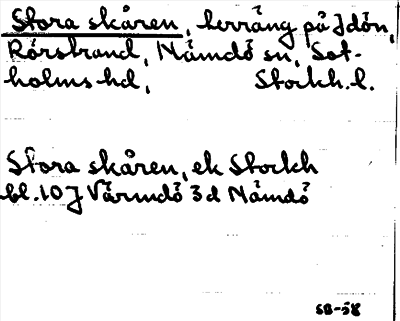 Stora skären, terräng på Idön,
Rörstrand, Nämdö sn, Sot-
holms hd, Stockh. l.
Stora skären, ek Stockh
bl. 10 J Värmdö 3d Nämdö
SB-58